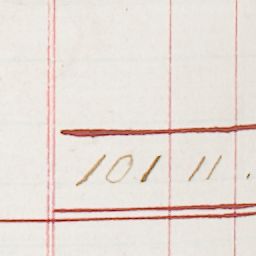 101 11 .